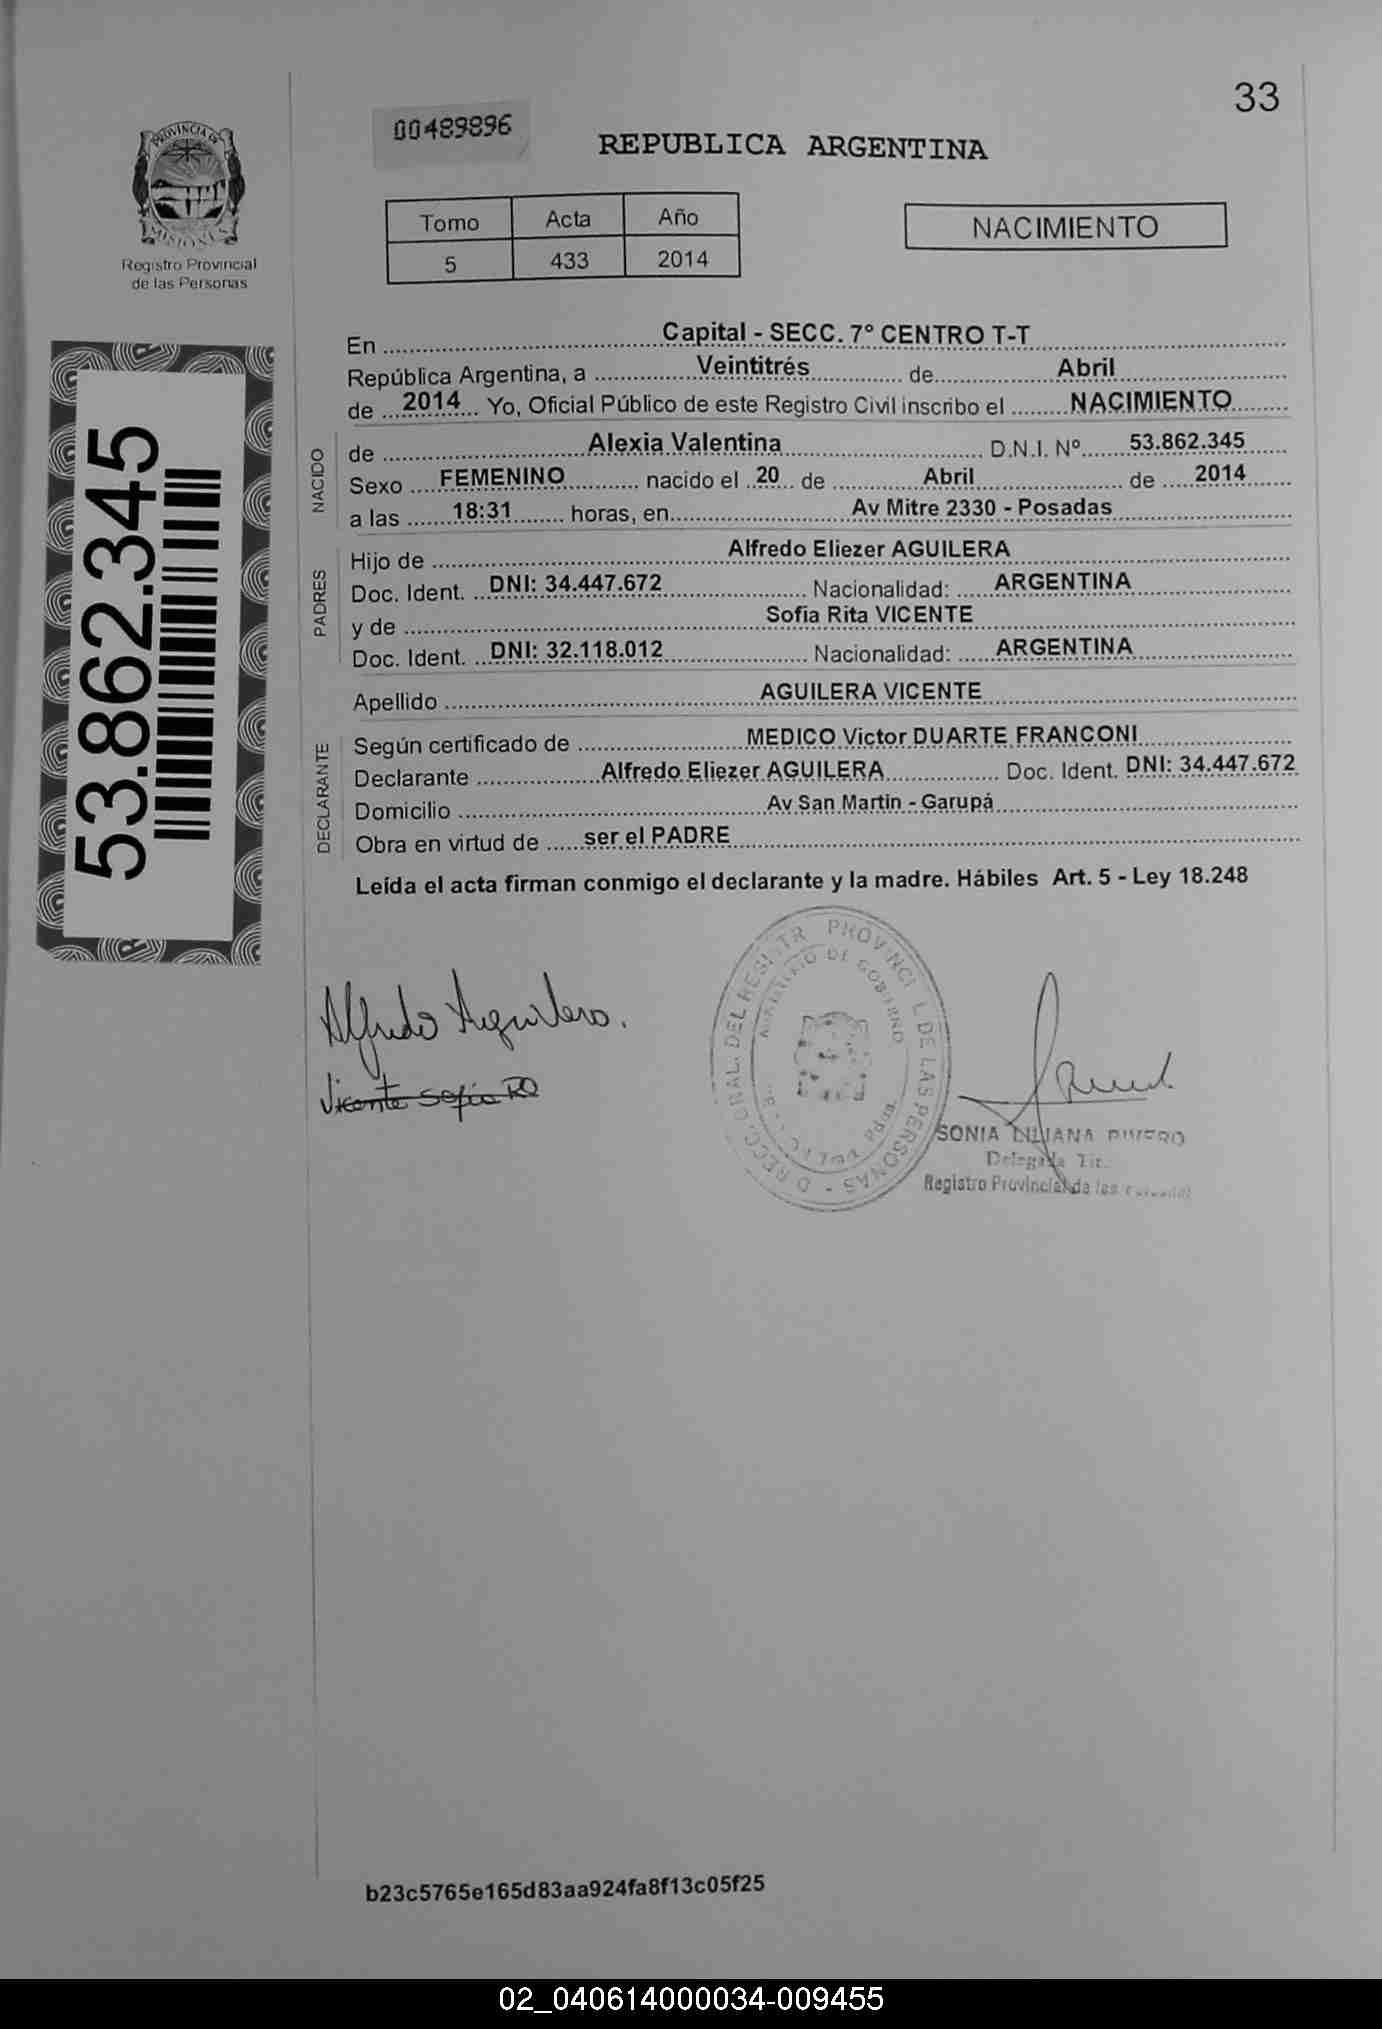 33
00489896
REPUBLICA ARGENTINA
PROVINCIA DE
MISIONES
Registro Provincial
de las Personas
Tomo Acta Año
5 433 2014
NACIMIENTO
53.862.345
En Capital - SECC. 7° CENTRO T-T
República Argentina, a Veintitrés de Abril
de 2014 Yo, Oficial Público de este Registro Civil inscribo el NACIMIENTO
NACIDO
de Alexia Valentina D.N.I. Nº 53.862.345
Sexo FEMENINO nacido el 20 de Abril de 2014
a las 18:31 horas, en Av Mitre 2330 - Posadas
PADRES
Hijo de Alfredo Eliezer AGUILERA
Doc. Ident. DNI: 34.447.672 Nacionalidad: ARGENTINA
y de Sofia Rita VICENTE
Doc. Ident. DNI: 32.118.012 Nacionalidad: ARGENTINA
Apellido AGUILERA VICENTE
DECLARANTE
Según certificado de MEDICO Victor DUARTE FRANCONI
Declarante Alfredo Eliezer AGUILERA Doc. Ident. DNI: 34.447.672
Domicilio Av San Martin - Garupá
Obra en virtud de ser el PADRE
Leída el acta firman conmigo el declarante y la madre. Hábiles Art. 5 - Ley 18.248
Alfredo Aguilera.
Vicente Sofia
DEL REGISTR PROVINCI L DE LAS PERSONAS
MINISTERIO DE GOBIERNO
SONIA LILIANA RIVERO
Delegada Tit.
Registro Provincial de las
b23c5765e165d83aa924fa8f13c05f25
02_040614000034-009455